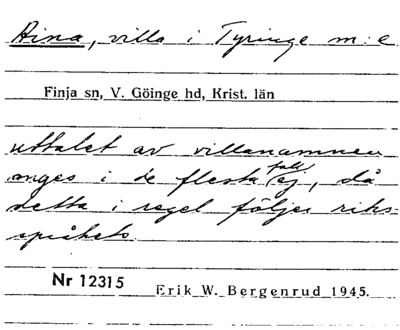 Aina, villa i Tyringe m:e
Finja sn, V. Göinge hd, Krist. län
uttalet av villanamnen
anges i de flesta fall ej, då
detta i regel följer riks-
språkets.
Nr 12315
Erik W. Bergenrud 1945.